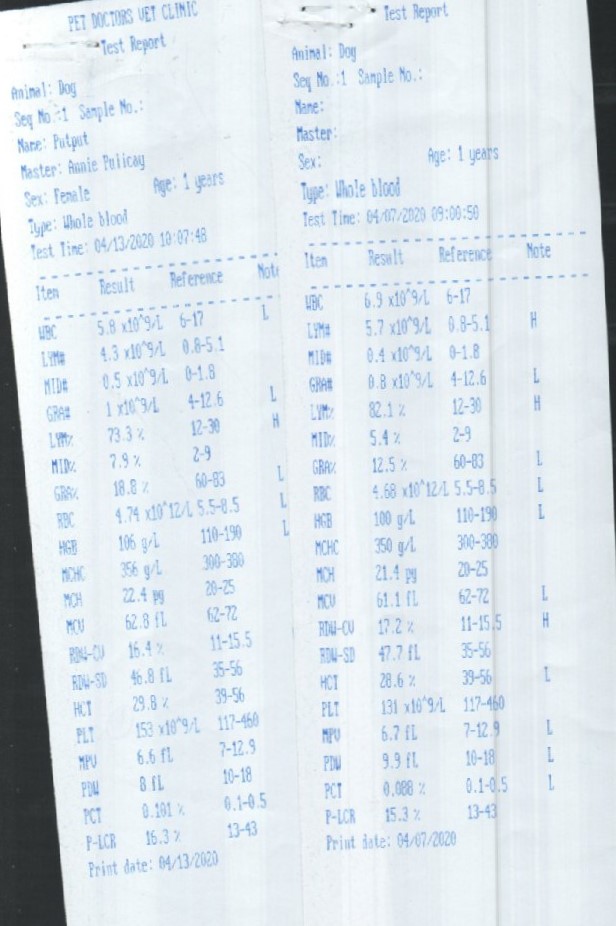 PET DOCTORS VET CLINIC
Test Report
Animal: Dog
Seq No.:1 Sample No.:
Name: Putput
Master: Annie Pulicay
Sex: Female Age: 1 years
Type: Whole blood
Test Time: 04/13/2020 10:07:48
Item Result Reference Note
WBC 5.8 x10^9/L 6-17 L
LYM# 4.3 x10^9/L 0.8-5.1
MID# 0.5 x10^9/L 0-1.8
GRA# 1 x10^9/L 4-12.6 L
LYM% 73.3 % 12-30 H
MID% 7.9 % 2-9
GRA% 18.8 % 60-83 L
RBC 4.74 x10^12/L 5.5-8.5 L
HGB 106 g/L 110-190 L
MCHC 356 g/L 300-380
MCH 22.4 pg 20-25
MCV 62.8 fL 62-72
RDW-CV 16.4 % 11-15.5
RDW-SD 46.8 fL 35-56
HCT 29.8 % 39-56
PLT 153 x10^9/L 117-460
MPV 6.6 fL 7-12.9
PDW 8 fL 10-18
PCT 0.101 % 0.1-0.5
P-LCR 16.3 % 13-43
Print date: 04/13/2020
Test Report
Animal: Dog
Seq No.:1 Sample No.:
Name:
Master:
Sex: Age: 1 years
Type: Whole blood
Test Time: 04/07/2020 09:00:50
Item Result Reference Note
WBC 6.9 x10^9/L 6-17
LYM# 5.7 x10^9/L 0.8-5.1 H
MID# 0.4 x10^9/L 0-1.8
GRA# 0.8 x10^9/L 4-12.6 L
LYM% 82.1 % 12-30 H
MID% 5.4 % 2-9
GRA% 12.5 % 60-83 L
RBC 4.68 x10^12/L 5.5-8.5 L
HGB 100 g/L 110-190 L
MCHC 350 g/L 300-380
MCH 21.4 pg 20-25
MCV 61.1 fL 62-72 L
RDW-CV 17.2 % 11-15.5 H
RDW-SD 47.7 fL 35-56
HCT 28.6 % 39-56 L
PLT 131 x10^9/L 117-460
MPV 6.7 fL 7-12.9 L
PDW 9.9 fL 10-18 L
PCT 0.088 % 0.1-0.5 L
P-LCR 15.3 % 13-43
Print date: 04/07/2020